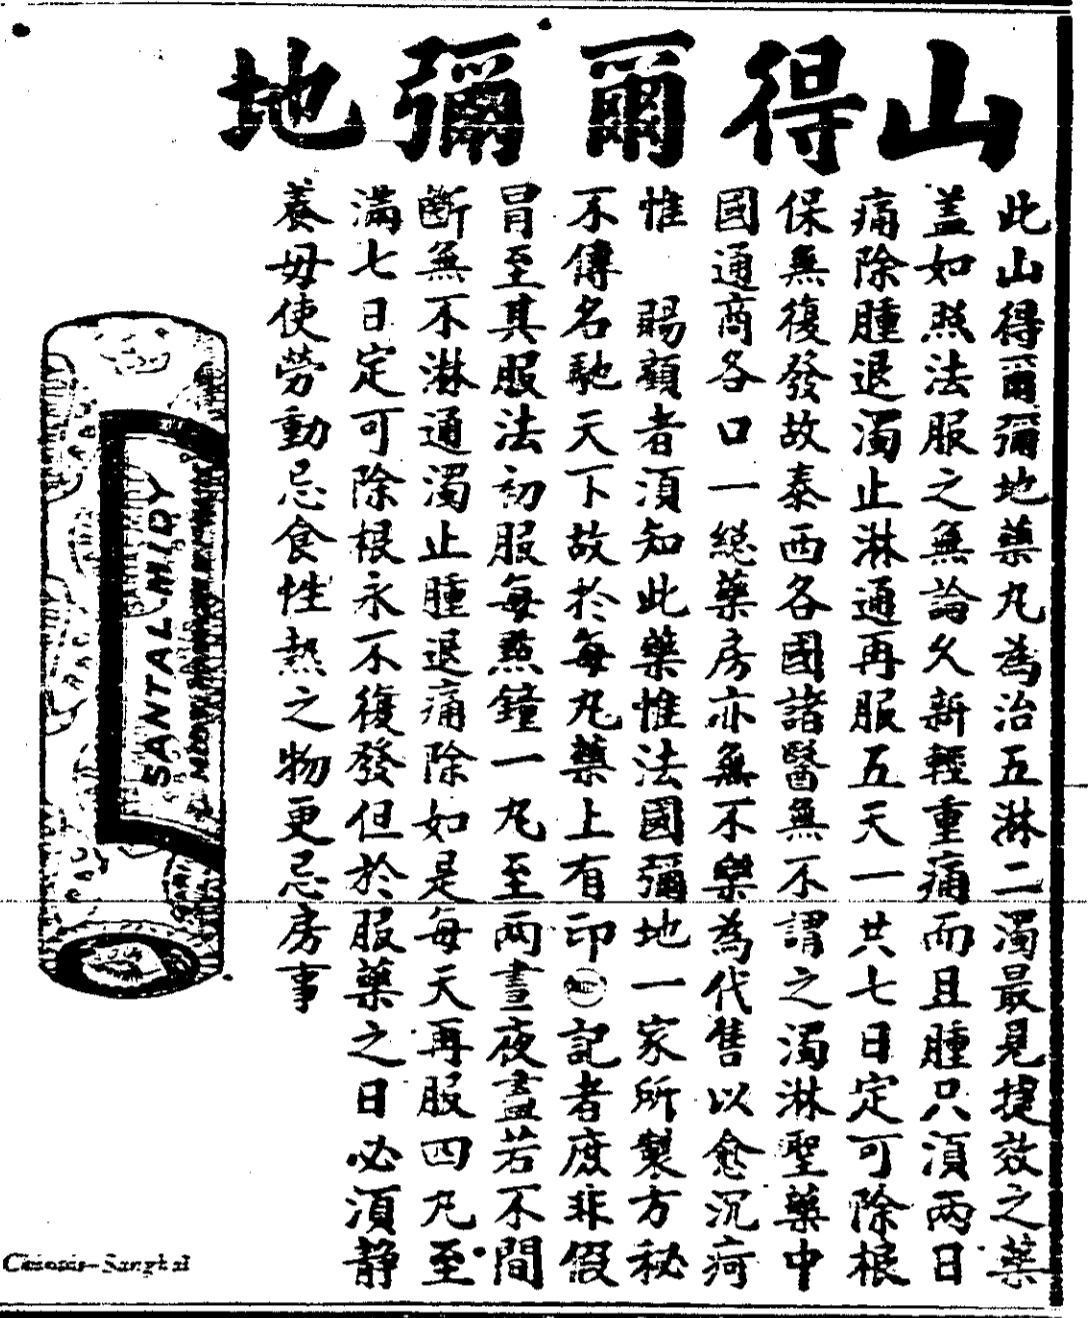 山得爾彌地
此山得爾彌地藥丸為治五淋二濁最見捷效之藥
蓋如照法服之無論久新輕重痛而且腫只湏兩日
痛除腫退濁止淋通再服五天一共七日定可除根
保無復發故泰西各國諸醫無不謂之濁淋聖藥中
國通商各口一總藥房亦無不樂為代售以愈沉疴
惟 賜顧者湏知此藥惟法國彌地一家所製方秘
不傳名馳天下故於每丸藥上有印記者庶非假
冒至其服法初服每㸃鐘一丸至兩晝夜盡若不間
斷無不淋通濁止腫退痛除如是每天再服四丸至
滿七日定可除根永不復發但於服藥之日必湏静
養毋使勞動忌食性熱之物更忌房事
SANTAL MIDY